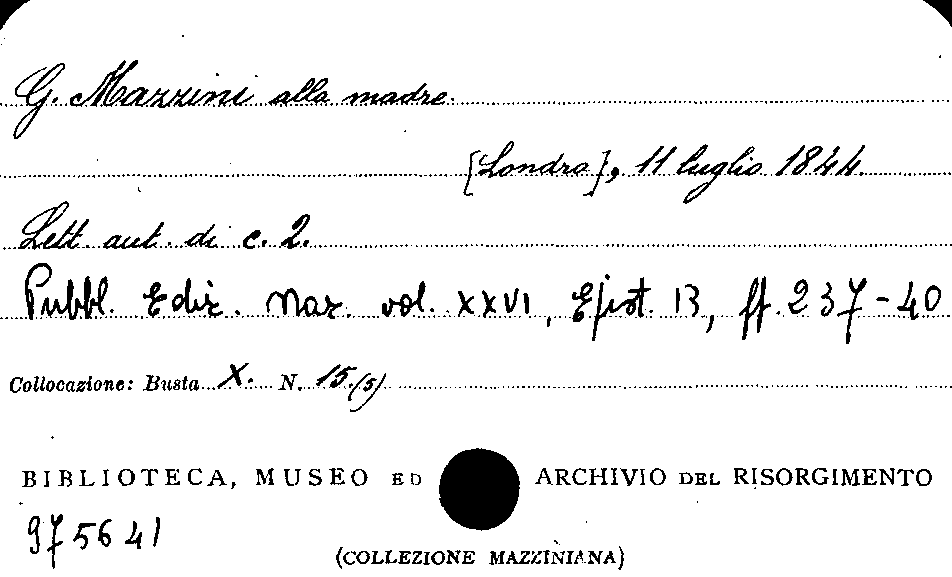 G. Mazzini alla madre.
[Londra], 11 luglio 1844.
Lett. aut. di c. 2.
Pubbl. Ediz. Naz. vol. XXVI, Epist. 13, ff. 237-40
Collocazione: Busta X. N. 15.(5)
BIBLIOTECA, MUSEO ED ARCHIVIO DEL RISORGIMENTO
975641
(COLLEZIONE MAZZINIANA)